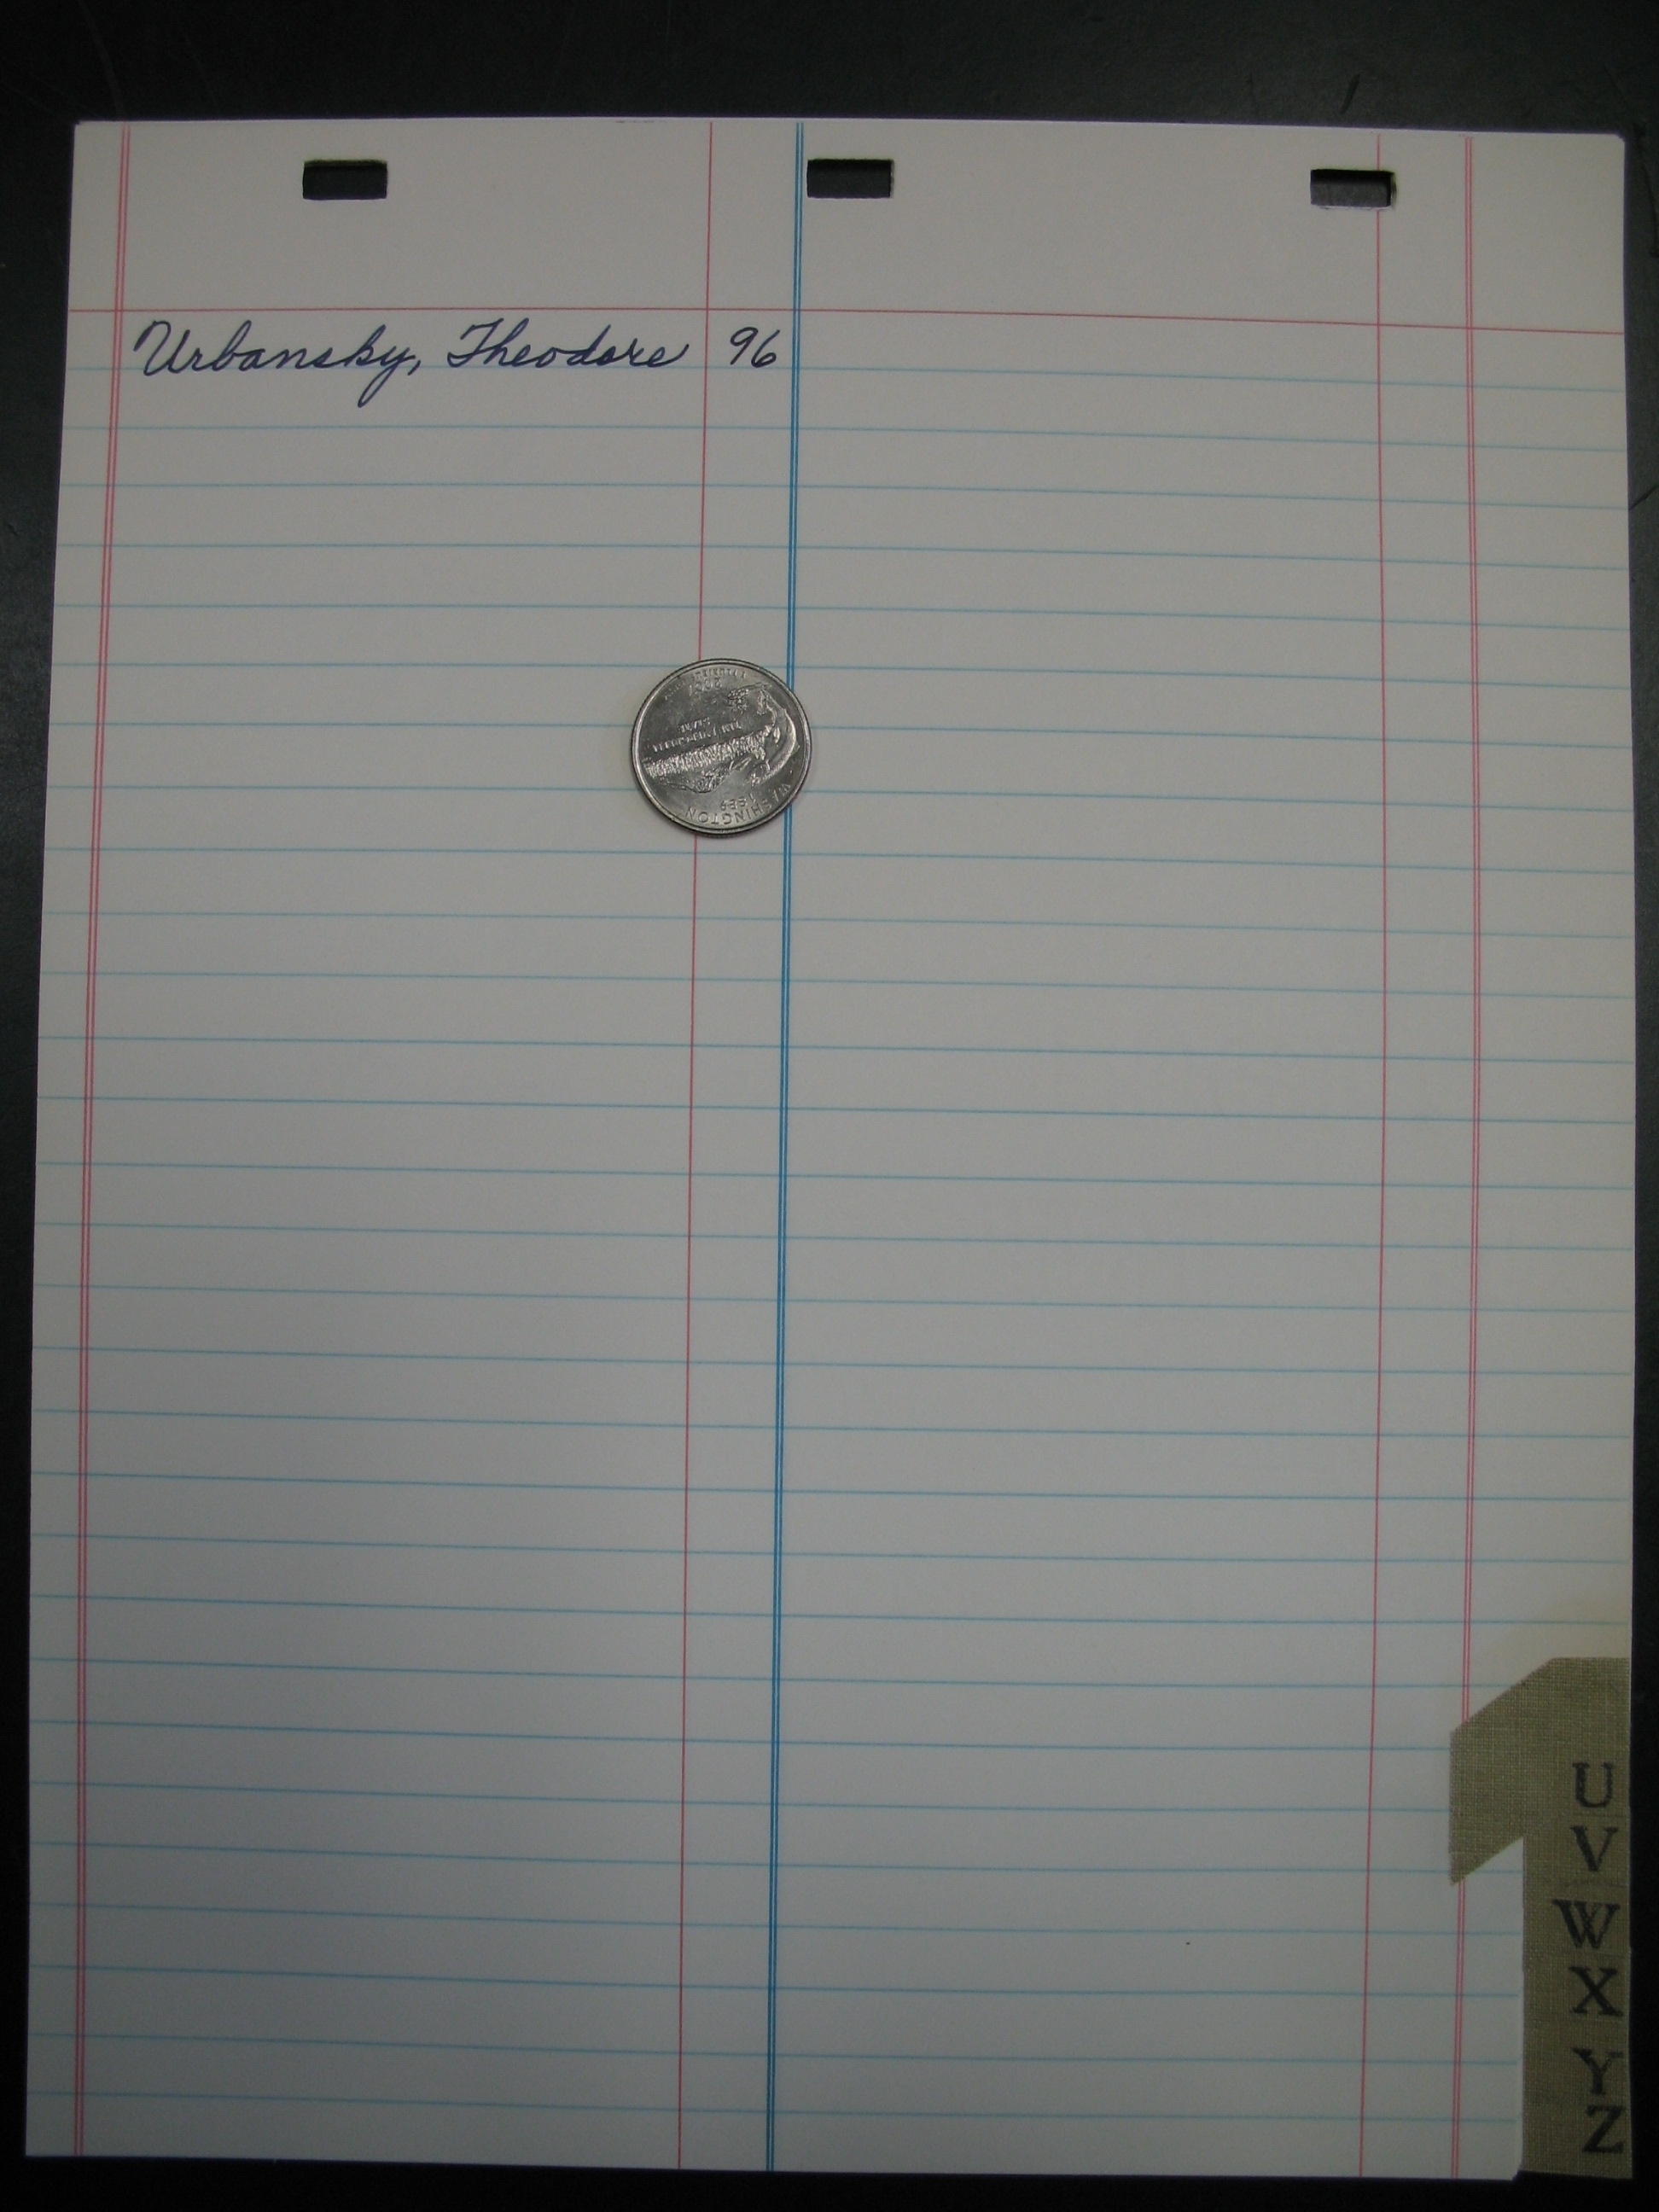 Urbansky, Theodore 96
WASHINGTON
U
V
W
X
Y
Z